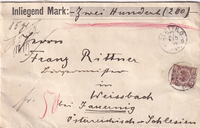 Inliegend Mark: Zwei Hundert (200)
Herrn
Franz Rittner
Bürgermeister
in Weissbach
bei Jauernig
Österreichisch-Schlesien